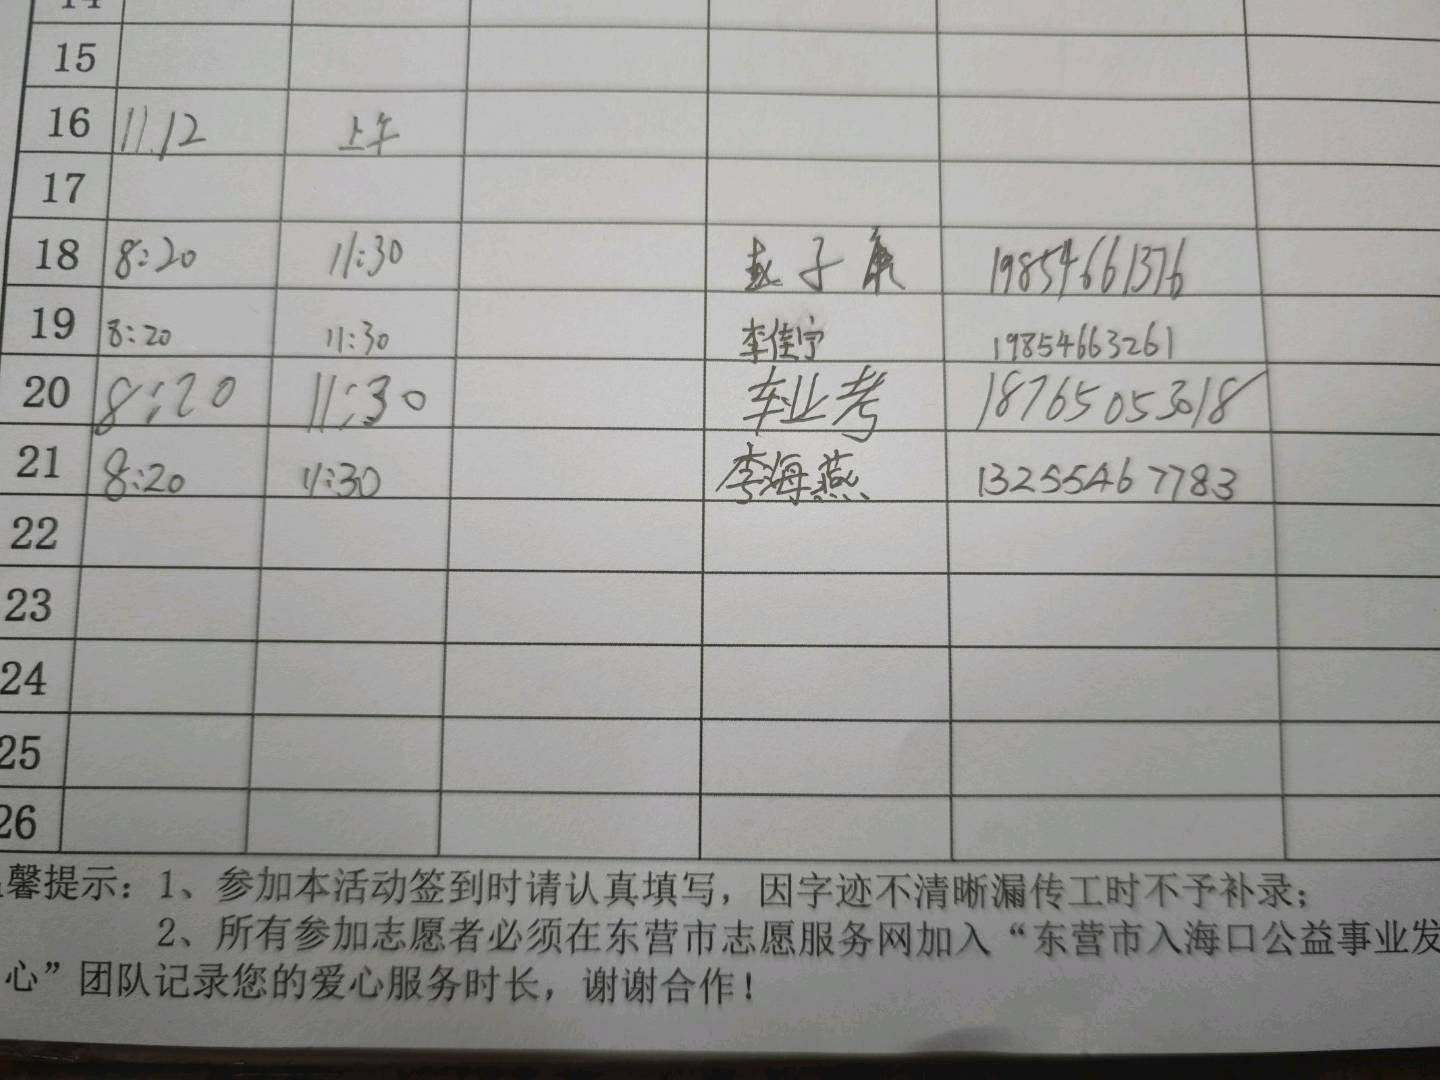 14
15
16 11.12 上午
17
18 8:20 11:30 赵子康 19854661376
19 8:20 11:30 李佳宁 19854663261
20 8:20 11:30 车业考 18765053018
21 8:20 11:30 李海燕 13255467783
22
23
24
25
26
馨提示：1、参加本活动签到时请认真填写，因字迹不清晰漏传工时不予补录；
2、所有参加志愿者必须在东营市志愿服务网加入“东营市入海口公益事业发
心”团队记录您的爱心服务时长，谢谢合作！